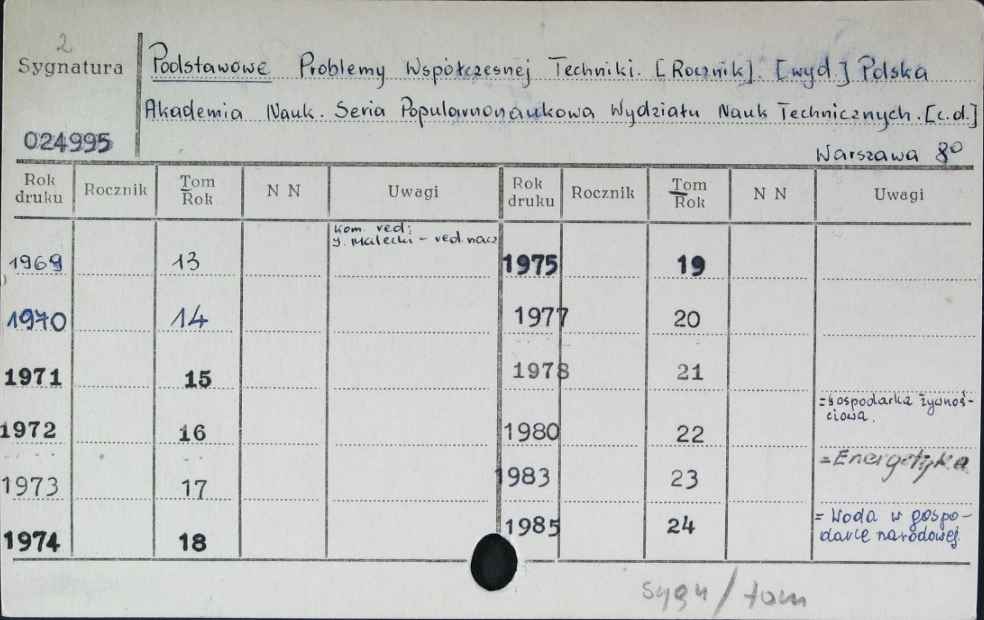 2
Sygnatura
024995
Podstawowe Problemy Współczesnej Techniki. [Rocznik]. [wyd.] Polska
Akademia Nauk. Seria Popularnonaukowa Wydziału Nauk Technicznych. [c.d.]
Warszawa 8°
Rok druku Rocznik Tom Rok N N Uwagi Rok druku Rocznik Tom Rok N N Uwagi
kom. red:
J. Malecki - red. nacz
1969 13 1975 19
1970 14 1977 20
1971 15 1978 21
1972 16 1980 22 = Gospodarka żywnoś-
ciowa.
1973 17 1983 23 = Energetyka
1974 18 1985 24 = Woda w gospo-
darce narodowej
sygn / tom